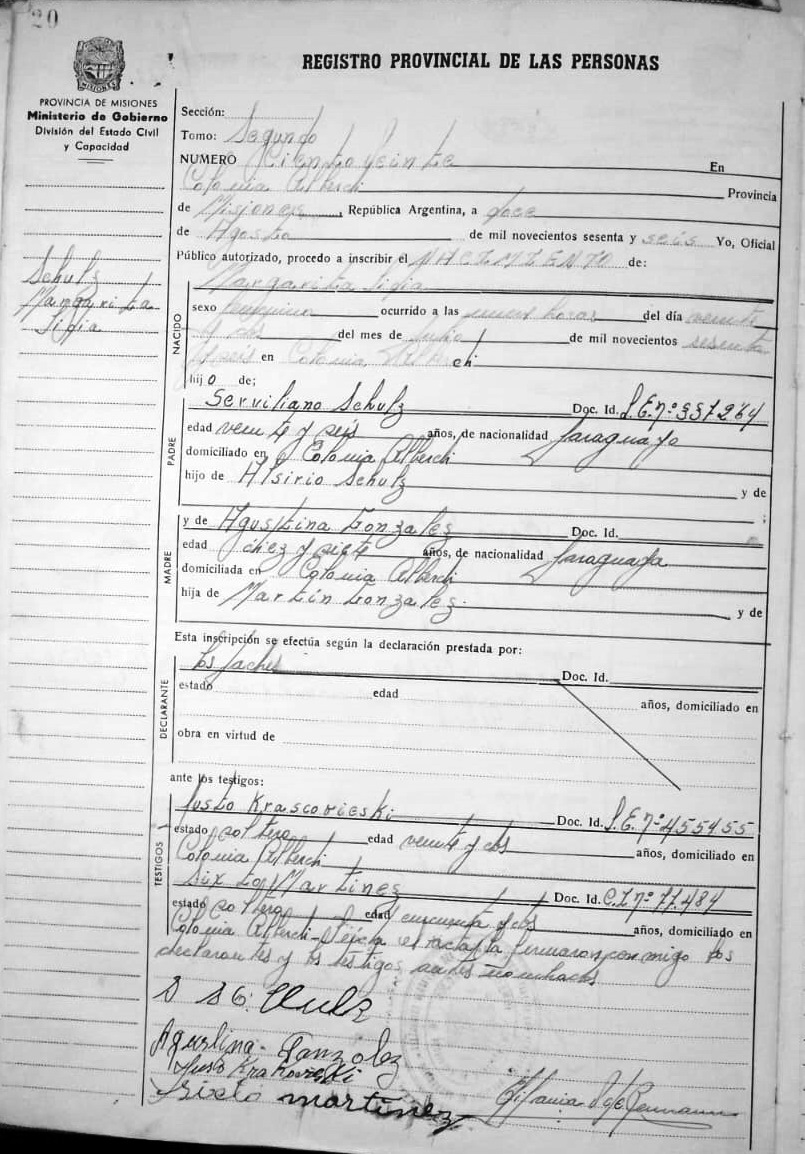 20
REGISTRO PROVINCIAL DE LAS PERSONAS
MISIONES
PROVINCIA DE MISIONES
Ministerio de Gobierno
División del Estado Civil
y Capacidad
Schulz
Margarita
Sección:
Tomo: Segundo
NUMERO Ciento Veinte En
Colonia Alberdi Provincia
de Misiones, República Argentina, a doce
de Agosto de mil novecientos sesenta y seis Yo, Oficial
Público autorizado, procedo a inscribir el NACIMIENTO de:
Margarita
NACIDO
sexo femenino ocurrido a las nueve horas del día veinte
y dos del mes de Julio de mil novecientos sesenta
y seis en Colonia Alberdi
hijo de;
PADRE
Serviliano Schulz Doc. Id.
edad veinte y seis años, de nacionalidad Paraguaya
domiciliado en Colonia Alberdi
hijo de Alsirio Schulz y de
;
MADRE
y de Agustina Gonzalez Doc. Id.
edad diez y siete años, de nacionalidad Paraguaya
domiciliada en Colonia Alberdi
hija de Martín Gonzalez. y de
Esta inscripción se efectúa según la declaración prestada por:
DECLARANTE
los Padres Doc. Id.
estado edad años, domiciliado en
obra en virtud de
ante los testigos:
TESTIGOS
Justo Krascovieski Doc. Id. nº 455455
estado soltero edad veinte y dos años, domiciliado en
Colonia Alberdi
Sixto Martinez Doc. Id. C.I nº 77.484
estado soltero edad cincuenta y dos años, domiciliado en
Colonia Alberdi - Leída el acta la firmaron conmigo los
declarantes y los testigos antes nombrados
Agustina - Gonzalez
Justo
Sixto martinez